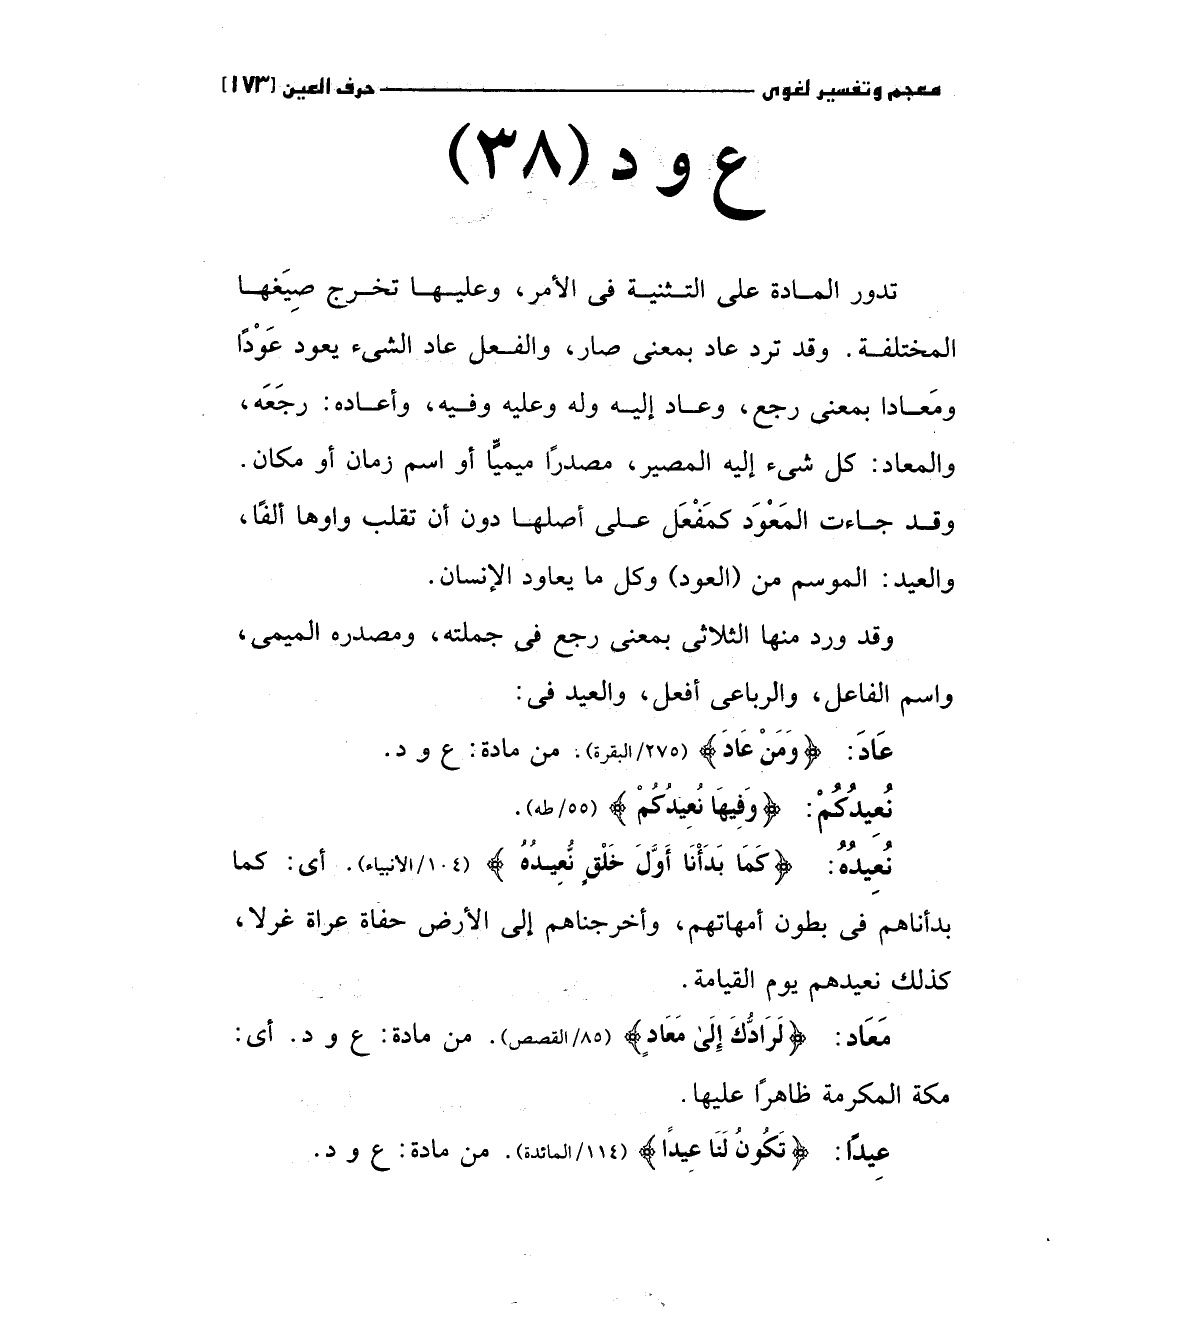 معجم وتفسير لغوى حرف العين [١٧٣]
ع و د (٣٨)
تدور المادة على التثنية فى الأمر، وعليها تخرج صِيَغها
المختلفة. وقد ترد عاد بمعنى صار، والفعل عاد الشىء يعود عَوْدًا
ومَعادا بمعنى رجع، وعاد إليه وله وعليه وفيه، وأعاده: رجَعَه،
والمعاد: كل شىء إليه المصير، مصدرًا ميميًّا أو اسم زمان أو مكان.
وقد جاءت المَعْوَد كمَفْعَل على أصلها دون أن تقلب واوها ألفًا،
والعيد: الموسم من (العود) وكل ما يعاود الإنسان.
وقد ورد منها الثلاثى بمعنى رجع فى جملته، ومصدره الميمى،
واسم الفاعل، والرباعى أفعل، والعيد فى:
عَادَ: ﴿وَمَنْ عَادَ﴾ (٢٧٥/البقرة). من مادة: ع و د.
نُعِيدُكُمْ: ﴿وَفِيهَا نُعِيدُكُمْ﴾ (٥٥/طه).
نُعِيدُهُ: ﴿كَمَا بَدَأْنَا أَوَّلَ خَلْقٍ نُّعِيدُهُ﴾ (١٠٤/الأنبياء). أى: كما
بدأناهم فى بطون أمهاتهم، وأخرجناهم إلى الأرض حفاة عراة غرلا،
كذلك نعيدهم يوم القيامة.
مَعَاد: ﴿لَرَادُّكَ إِلَىٰ مَعَادٍ﴾ (٨٥/القصص). من مادة: ع و د. أى:
مكة المكرمة ظاهرًا عليها.
عِيدًا: ﴿تَكُونُ لَنَا عِيدًا﴾ (١١٤/المائدة). من مادة: ع و د.